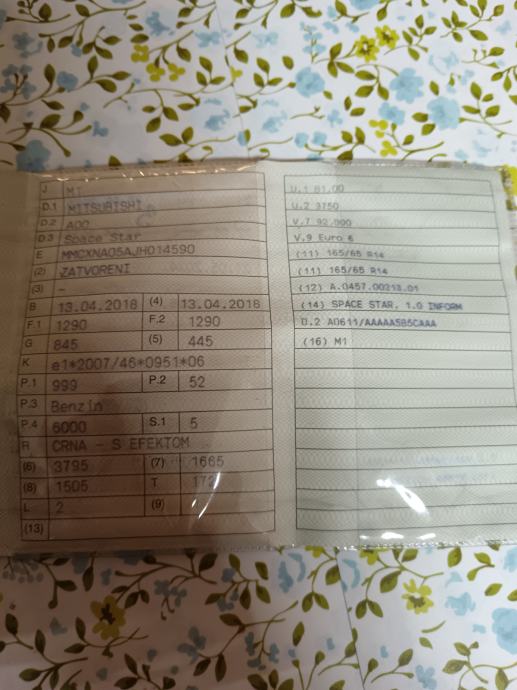 J M1
D.1 MITSUBISHI
D.2 A00
D.3 Space Star
E MMCXNA05AJH014590
(2) ZATVORENI
(3) -
B 13.04.2018 (4) 13.04.2018
F.1 1290 F.2 1290
G 845 (5) 445
K e1*2007/46*0951*06
P.1 999 P.2 52
P.3 Benzin
P.4 6000 S.1 5
R CRNA - S EFEKTOM
(6) 3795 (7) 1665
(8) 1505 T 172
L 2 (9)
(13)
U.1 81.00
U.2 3750
V.7 92.000
V.9 Euro 6
(11) 165/65 R14
(11) 165/65 R14
(12) A.0457.00213.01
(14) SPACE STAR, 1.0 INFORM
D.2 A0611/AAAAA5B5CAAA
(16) M1